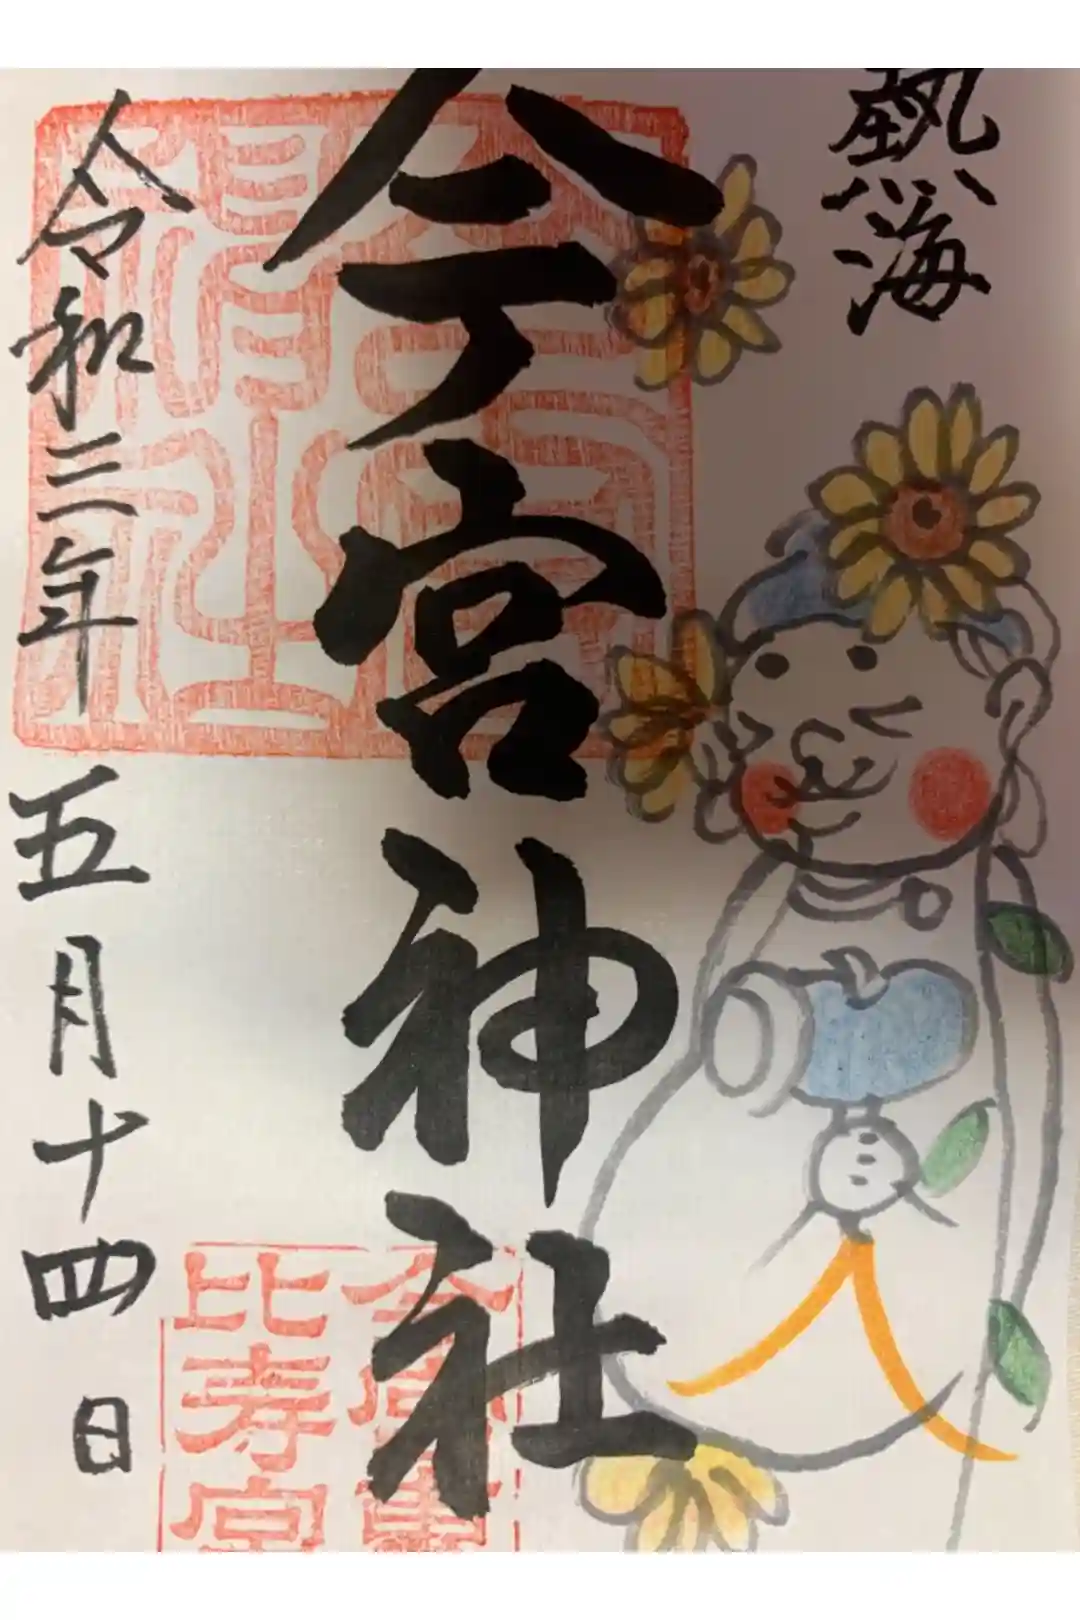 熱海
今宮神社
令和三年五月十四日
今宮神社
比寿宮